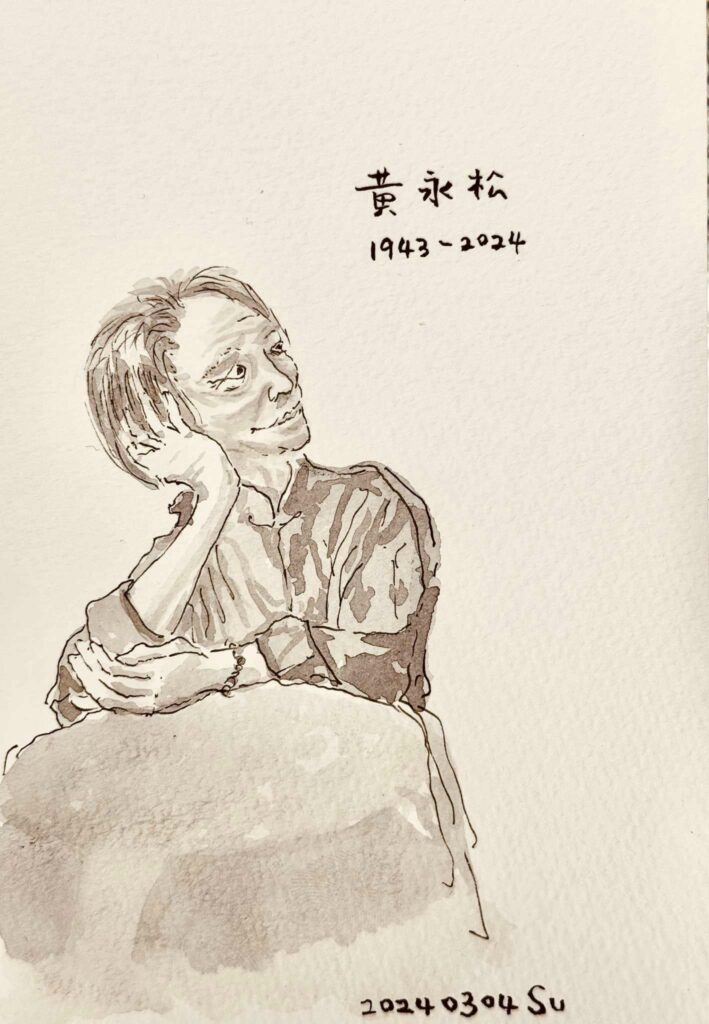 黃永松
1943-2024
20240304 Su